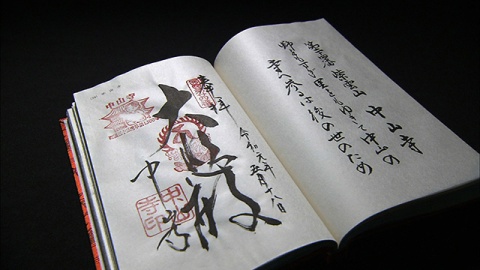 第二十四番 紫雲山 中山寺
野をもすぎ里をもゆきて中山の
寺へ参るは後の世のため
奉拝
令和元年
五月十八日
大悲殿
中山寺
中山寺
中山寺印